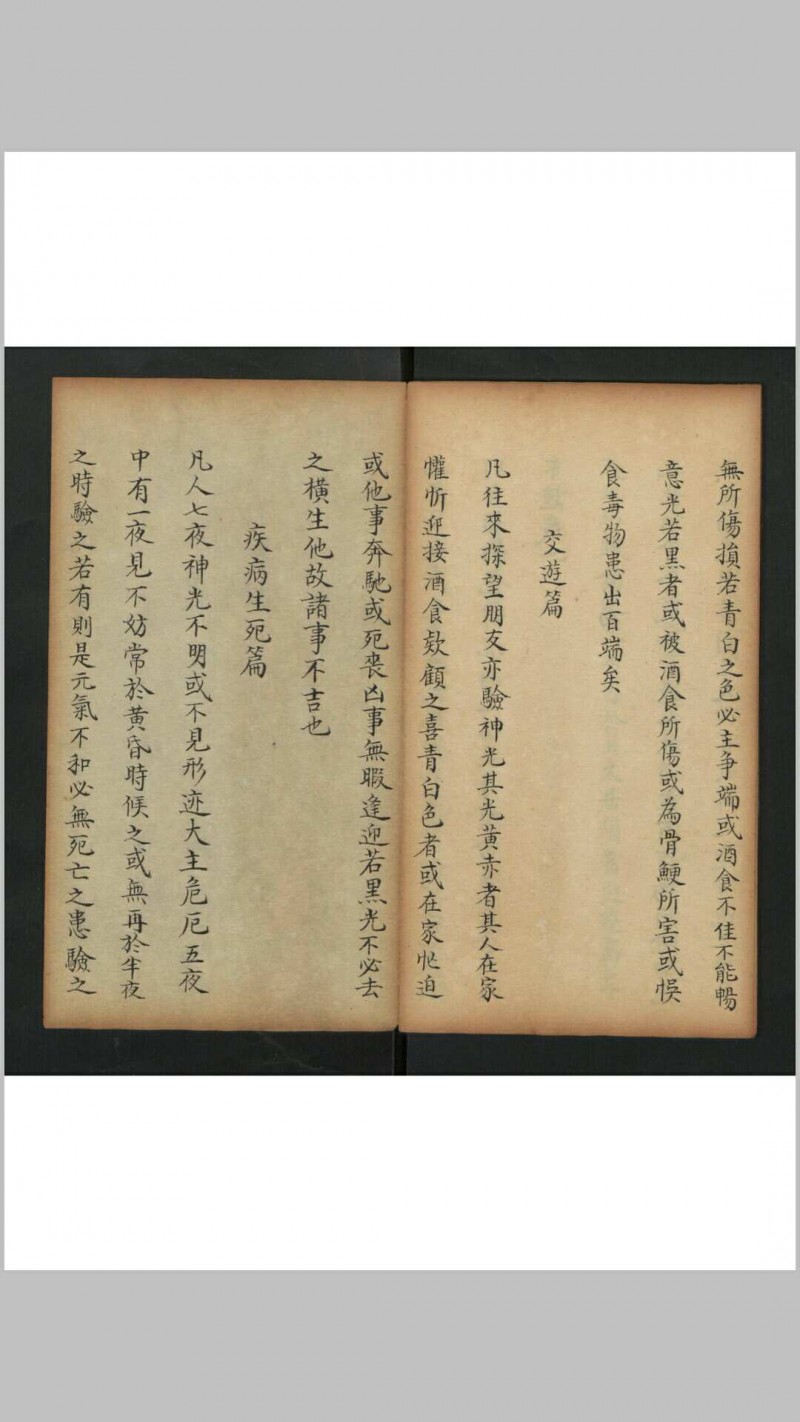 無所傷損若青白之色必主争端或酒食不佳不能暢
意光若黑者或被酒食所傷或為骨鯁所害或悞
食毒物患出百端矣
交遊篇
凡往來探望朋友亦驗神光其光黄赤者其人在家
懽忻迎接酒食欵顧之喜青白色者或在家忙迫
或他事奔馳或死喪凶事無暇逢迎若黑光不必去
之横生他故諸事不吉也
疾病生死篇
凡人七夜神光不明或不見形迹大主危厄五夜
中有一夜見不妨常於黄昏時候之或無再於半夜
之時驗之若有則是元氣不和必無死亡之患驗之